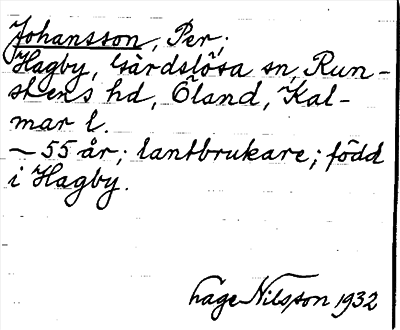 Johansson, Per;
Hagby, Gärdslösa sn, Run-
stens hd, Öland, Kal-
mar l.
~ 55 år; lantbrukare; född
i Hagby.
Hage Nilsson 1932